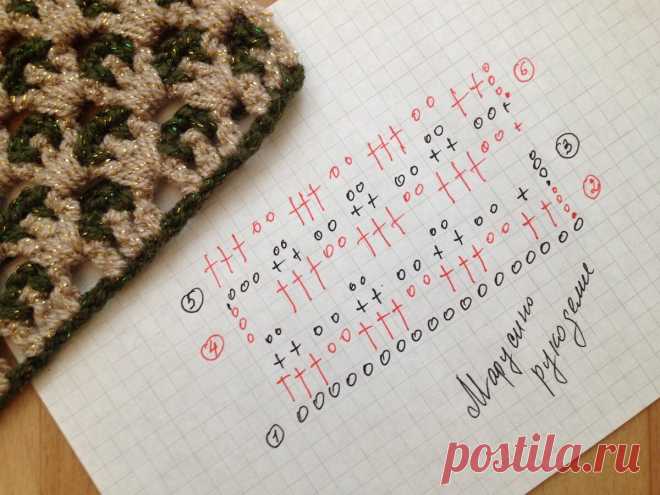 6
3
2
5
4
1
Марусино
рукоделие
postila.ru